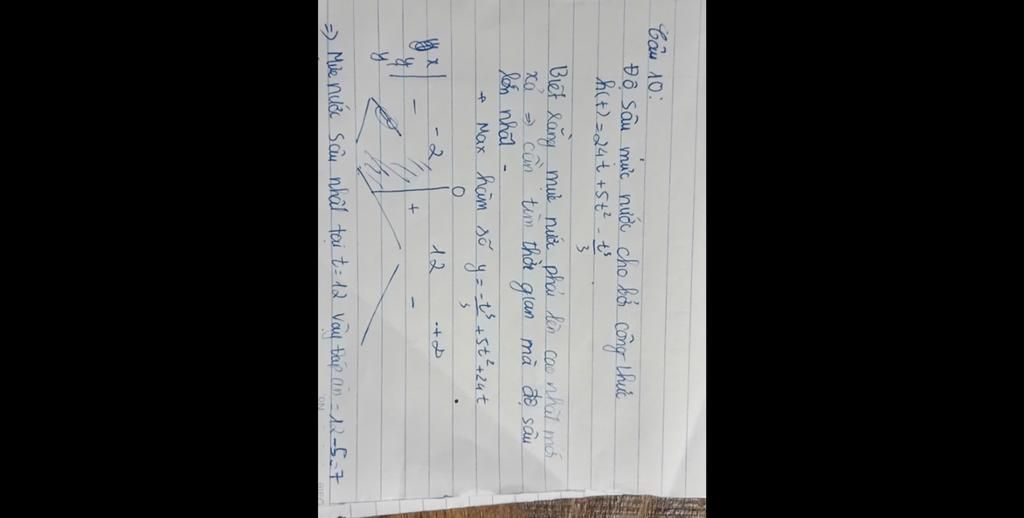 Câu 10:
Độ sâu mức nước cho bởi công thức
h(t) = 24t + 5t² - t³/3
Biết rằng mực nước phải lên cao nhất mới
xả => cần tìm thời gian mà độ sâu
lớn nhất -
+ Max hàm số y = -t³/3 + 5t² + 24t
x -2 0 12 +∞
y' - + -
y
=> Mức nước sâu nhất tại t=12 vậy đáp án = 12-5=7